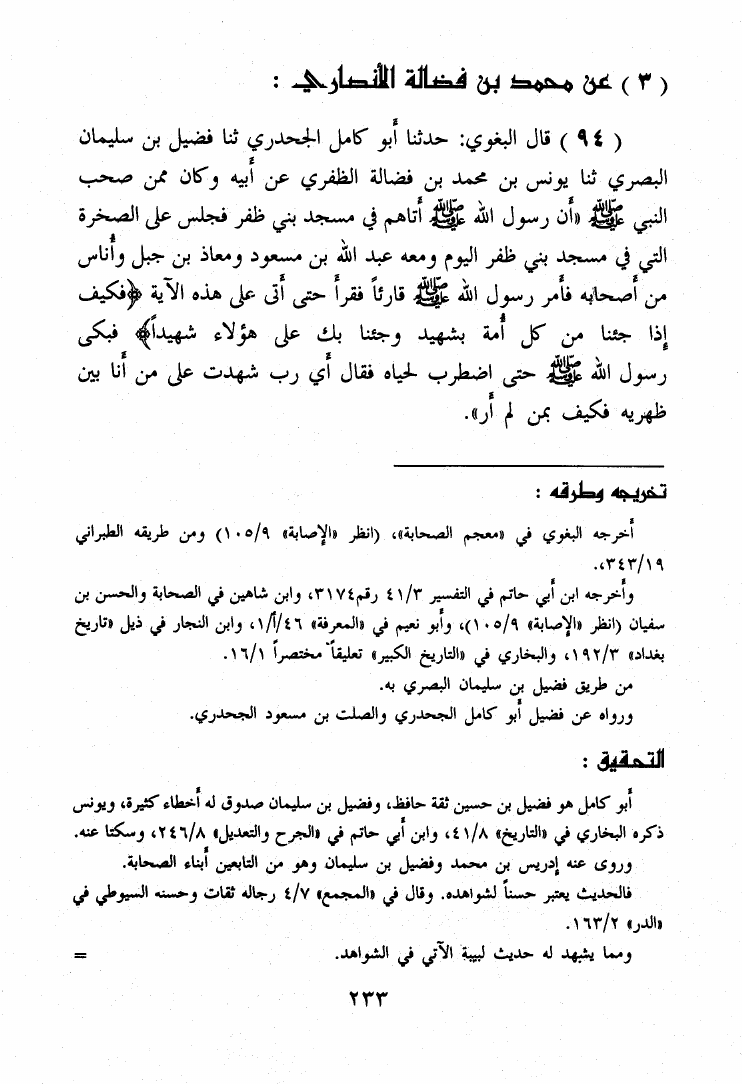 ( ٣ ) عن محمد بن فضالة الأنصاري :
( ٩٤ ) قال البغوي: حدثنا أبو كامل الجحدري ثنا فضيل بن سليمان
البصري ثنا يونس بن محمد بن فضالة الظفري عن أبيه وكان ممن صحب
النبي ﷺ «أن رسول الله ﷺ أتاهم في مسجد بني ظفر فجلس على الصخرة
التي في مسجد بني ظفر اليوم ومعه عبد الله بن مسعود ومعاذ بن جبل وأناس
من أصحابه فأمر رسول الله ﷺ قارئاً فقرأ حتى أتى على هذه الآية ﴿فكيف
إذا جئنا من كل أمة بشهيد وجئنا بك على هؤلاء شهيداً﴾ فبكى
رسول الله ﷺ حتى اضطرب لحياه فقال أي رب شهدت على من أنا بين
ظهريه فكيف بمن لم أر».
تخريجه وطرقه :
أخرجه البغوي في «معجم الصحابة»، (انظر «الإصابة» ١٠٥/٩) ومن طريقه الطبراني
٣٤٣/١٩،.
وأخرجه ابن أبي حاتم في التفسير ٤١/٣ رقم٣١٧٤، وابن شاهين في الصحابة والحسن بن
سفيان (انظر «الإصابة» ١٠٥/٩)، وأبو نعيم في «المعرفة» ٤٦/أ/١، وابن النجار في ذيل «تاريخ
بغداد» ١٩٢/٣، والبخاري في «التاريخ الكبير» تعليقاً مختصراً ١٦/١.
من طريق فضيل بن سليمان البصري به.
ورواه عن فضيل أبو كامل الجحدري والصلت بن مسعود الجحدري.
التحقيق :
أبو كامل هو فضيل بن حسين ثقة حافظ، وفضيل بن سليمان صدوق له أخطاء كثيرة، ويونس
ذكره البخاري في «التاريخ» ٤١/٨، وابن أبي حاتم في «الجرح والتعديل» ٢٤٦/٨، وسكتا عنه.
وروى عنه إدريس بن محمد وفضيل بن سليمان وهو من التابعين أبناء الصحابة.
فالحديث يعتبر حسناً لشواهده. وقال في «المجمع» ٤/٧ رجاله ثقات وحسنه السيوطي في
«الدر» ١٦٣/٢.
ومما يشهد له حديث لبيبة الآتي في الشواهد. =
٢٣٣